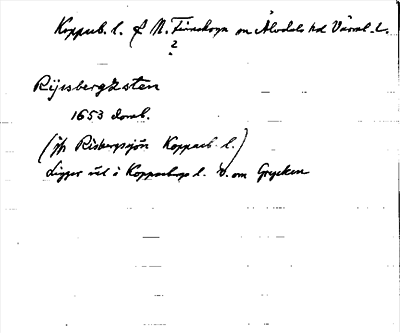 Kopparb. l. & N. Finnskoga sn Älvdals hd Värml. l.
2
Rijssbergzsten
1653 domb.
(jfr Risbergssjön Kopparb. l.)
Ligger väl i Kopparbergs l. V. om Grycken